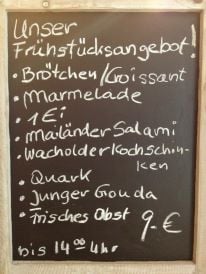 Unser
Frühstücksangebot!
• Brötchen/Croissant
• Marmelade
• 1 Ei
• Mailänder Salami
• Wacholderkochschin-
ken
• Quark
• Junger Gouda
• Frisches Obst
9.-€
bis 14⁰⁰ Uhr